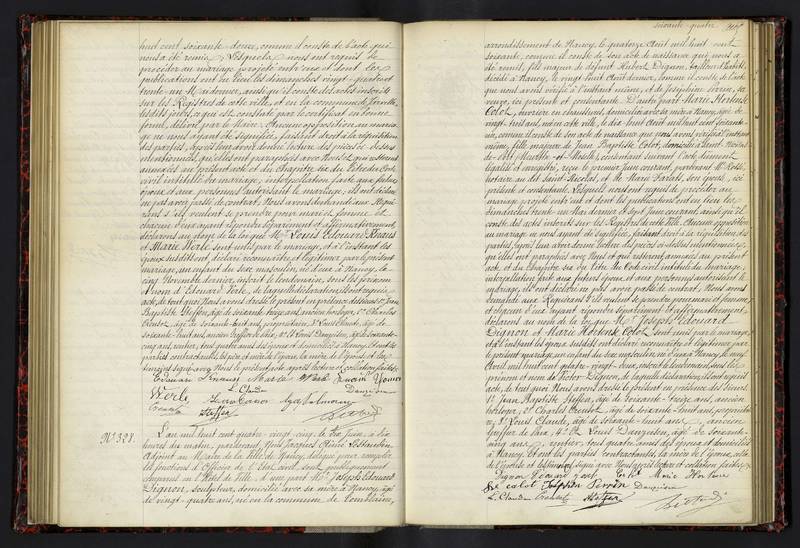 huit cent soixante-douze, comme il conste de l'acte qui
nous a été remis. Lesquels nous ont requis de
procéder au mariage projeté entr'eux et dont les
publications ont eu lieu les dimanches vingt-quatre et
trente-un Mai dernier, ainsi qu'il conste des actes inscrits
sur les Registres de cette ville, et en la commune de
desdits jours, ce qui est constaté par le certificat en bonne
forme, délivré par le Maire. Aucune opposition au maria-
ge ne nous ayant été signifiée, faisant droit à la réquisition
des parties, après leur avoir donné lecture des pièces ci-dessus
mentionnées, qu'elles ont paraphées avec Nous et qui resteront
annexées au présent acte et du chapitre six du titre du Code
civil intitulé du mariage, interpellation faite aux futurs
époux et aux personnes autorisant le mariage, ils ont déclaré
ne pas avoir passé de contrat; Nous avons demandé aux Requé-
rants s'ils veulent se prendre pour mari et femme et
chacun d'eux ayant répondu séparément et affirmativement,
déclarons au nom de la loi que Mr Louis Edouard
et Marie Werlé sont unis par le mariage, et à l'instant les
époux susdits ont déclaré reconnaître et légitimer par le présent
mariage, un enfant du sexe masculin, né d'eux à Nancy, le
cinq Novembre dernier, inscrit le lendemain, sous les prénom
et nom d'Edouard Werlé, de laquelle déclaration, ils ont requis
acte, de tout quoi Nous avons dressé le présent en présence des Sieurs 1° Jean
Baptiste Steffen, âgé de soixante-treize ans, ancien horloger, 2° Charles
Creutot, âgé de soixante-huit ans, propriétaire, 3° Louis Claude, âgé de
soixante-huit ans, ancien greffier de Paix, et 4° Louis Dauzusten, âgé de soixante-
cinq ans, rentier, tous quatre amis des époux et domiciliés à Nancy. Et ont les
parties contractantes, le père et mère de l'époux, la mère de l'épouse et les
témoins signé avec Nous le présent acte après lecture et collation faites.
Edouard Marie Werlé
Werlé L. Claude
Creutot Steffen
N° 328. L'an mil huit cent quatre-vingt-cinq, le Juin, à dix
heures du matin, pardevant Nous Jacques
Adjoint au Maire de la Ville de Nancy, délégué pour remplir
les fonctions d'Officier de l'Etat civil, sont publiquement
comparus en l'Hôtel de Ville, d'une part Mr Joseph Edouard
Dignon, sculpteur, domicilié avec sa mère à Nancy, âgé
de vingt-quatre ans, né en la commune de
soixante quatre
arrondissement de Nancy, le quatorze Août mil huit cent
soixante, comme il conste de son acte de naissance qui nous a
été remis, fils majeur de défunt Hubert Dignon, tailleur d'habits,
décédé à Nancy, le vingt-huit Août dernier, comme il conste de l'acte
que nous avons vérifié à l'instant même, et de Joséphine Perrin, sa
veuve, ici présente et consentante. D'autre part Marie Hortense
Colot, ouvrière en chaussures, domiciliée avec sa mère à Nancy, âgée de
vingt-trois ans, née en cette ville, le dix-huit Août mil huit cent soixante-
un, comme il conste de son acte de naissance que nous avons vérifié à l'instant
même, fille majeure de Jean Baptiste Colot, domicilié à Saint Nicolas-
de-Port (Meurthe-et-Moselle), consentant suivant l'acte dûment
légalisé et enregistré, reçu le premier Juin courant, pardevant Me
notaire audit Saint Nicolas, et de Marie son épouse, ici
présente et consentante. Lesquels nous ont requis de procéder au
mariage projeté entr'eux et dont les publications ont eu lieu les
dimanches trente-un Mai dernier et sept Juin courant, ainsi qu'il
conste des actes inscrits sur les Registres de cette Ville. Aucune opposition
au mariage ne nous ayant été signifiée, faisant droit à la réquisition des
parties, après leur avoir donné lecture des pièces ci-dessus mentionnées,
qu'elles ont paraphées avec Nous et qui resteront annexées au présent
acte, et du Chapitre six du titre du Code civil intitulé du mariage,
interpellation faite aux futurs époux et aux personnes autorisant le
mariage, ils ont déclaré ne pas avoir passé de contrat; Nous avons
demandé aux Requérants s'ils veulent se prendre pour mari et femme,
et chacun d'eux ayant répondu séparément et affirmativement,
déclarons au nom de la loi que Mr Joseph Edouard
Dignon et Marie Hortense Colot sont unis par le mariage,
et à l'instant les époux susdits ont déclaré reconnaître et légitimer par
le présent mariage, un enfant du sexe masculin, né d'eux à Nancy, le neuf
Avril mil huit cent quatre-vingt-deux, inscrit le lendemain, sous les
prénom et nom de Victor Dignon, de laquelle déclaration, ils ont requis
acte, de tout quoi Nous avons dressé le présent en présence des Sieurs
1° Jean Baptiste Steffen, âgé de soixante-treize ans, ancien
horloger, 2° Charles Creutot, âgé de soixante-huit ans, propriétai-
re, 3° Louis Claude, âgé de soixante-huit ans, ancien
greffier de Paix, 4° et Louis Dauzusten, âgé de soixante-
cinq ans, rentier, tous quatre amis des époux et domiciliés
à Nancy. Et ont les parties contractantes, la mère de l'époux, celle
de l'épouse et les témoins signé avec Nous après lecture et collation faites.
Dignon Edouard Marie Hortense
colot Joséphine Perrin
L. Claude Creutot Steffen